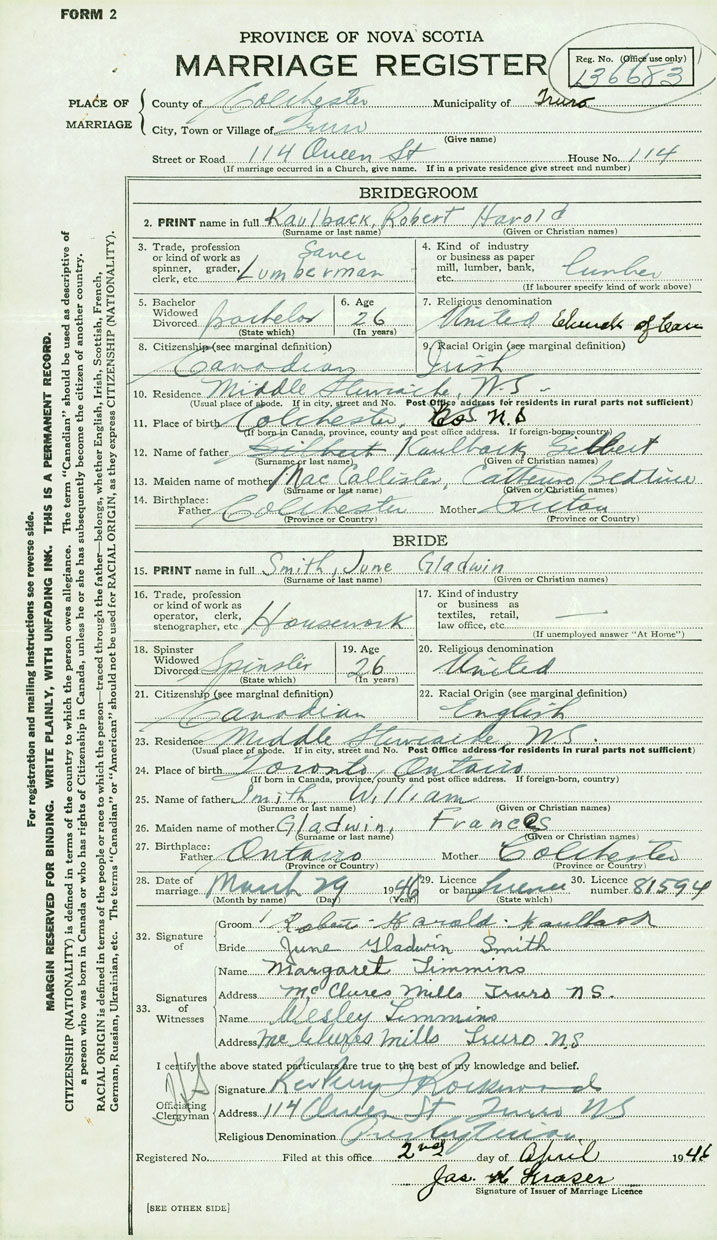 FORM 2
PROVINCE OF NOVA SCOTIA
MARRIAGE REGISTER
Reg. No. (Office use only)
136683
PLACE OF MARRIAGE
County of Colchester Municipality of Truro
City, Town or Village of Truro
(Give name)
Street or Road 114 Queen St House No. 114
(If marriage occurred in a Church, give name. If in a private residence give street and number)
BRIDEGROOM
2. PRINT name in full Kaulback, Robert Harold
(Surname or last name) (Given or Christian names)
3. Trade, profession or kind of work as spinner, grader, clerk, etc. Lumberman
4. Kind of industry or business as paper mill, lumber, bank, etc. lumber
(If labourer specify kind of work above)
5. Bachelor Widowed Divorced bachelor
(State which)
6. Age 26
(In years)
7. Religious denomination United Church of Can
8. Citizenship (see marginal definition) Canadian
9. Racial Origin (see marginal definition) Irish
10. Residence Middle Stewiacke, N.S.
(Usual place of abode. If in city, street and No. Post Office address for residents in rural parts not sufficient)
11. Place of birth Colchester, Co. N.S
(If born in Canada, province, county and post office address. If foreign-born, country)
12. Name of father Kaulback Gilbert
(Surname or last name) (Given or Christian names)
13. Maiden name of mother MacCallister,
(Surname or last name) (Given or Christian names)
14. Birthplace:
Father Colchester Mother Pictou
(Province or Country) (Province or Country)
BRIDE
15. PRINT name in full Smith, June Gladwin
(Surname or last name) (Given or Christian names)
16. Trade, profession or kind of work as operator, clerk, stenographer, etc Housework
17. Kind of industry or business as textiles, retail, law office, etc. —
(If unemployed answer "At Home")
18. Spinster Widowed Divorced Spinster
(State which)
19. Age 26
(In years)
20. Religious denomination United
21. Citizenship (see marginal definition) Canadian
22. Racial Origin (see marginal definition) English
23. Residence Middle Stewiacke, N.S.
(Usual place of abode. If in city, street and No. Post Office address for residents in rural parts not sufficient)
24. Place of birth Toronto, Ontario
(If born in Canada, province, county and post office address. If foreign-born, country)
25. Name of father Smith, William
(Surname or last name) (Given or Christian names)
26. Maiden name of mother Gladwin, Frances
(Surname or last name) (Given or Christian names)
27. Birthplace:
Father Ontario Mother Colchester
(Province or Country) (Province or Country)
28. Date of marriage March 29 1946
(Month by name) (Day) (Year)
29. Licence or banns
(State which)
30. Licence number 81594
32. Signature of
Groom Robert Harold Kaulback
Bride June Gladwin Smith
33. Signatures of Witnesses
Name Margaret Timmins
Address McClures Mills Truro N.S.
Name Wesley Timmins
Address McClures Mills Truro N.S
I certify the above stated particulars are true to the best of my knowledge and belief.
Officiating Clergyman
Signature
Address 114 Queen St Truro NS
Religious Denomination Presbyterian
Registered No. Filed at this office 2nd day of April 1946
Jas. Fraser
Signature of Issuer of Marriage Licence
[SEE OTHER SIDE]
For registration and mailing instructions see reverse side.
MARGIN RESERVED FOR BINDING. WRITE PLAINLY, WITH UNFADING INK. THIS IS A PERMANENT RECORD.
CITIZENSHIP (NATIONALITY) is defined in terms of the country to which the person owes allegiance. The term "Canadian" should be used as descriptive of
a person who was born in Canada or who has rights of Citizenship in Canada, unless he or she has subsequently become the citizen of another country.
RACIAL ORIGIN is defined in terms of the people or race to which the person—traced through the father—belongs, whether English, Irish, Scottish, French,
German, Russian, Ukrainian, etc. The terms "Canadian" or "American" should not be used for RACIAL ORIGIN, as they express CITIZENSHIP (NATIONALITY).